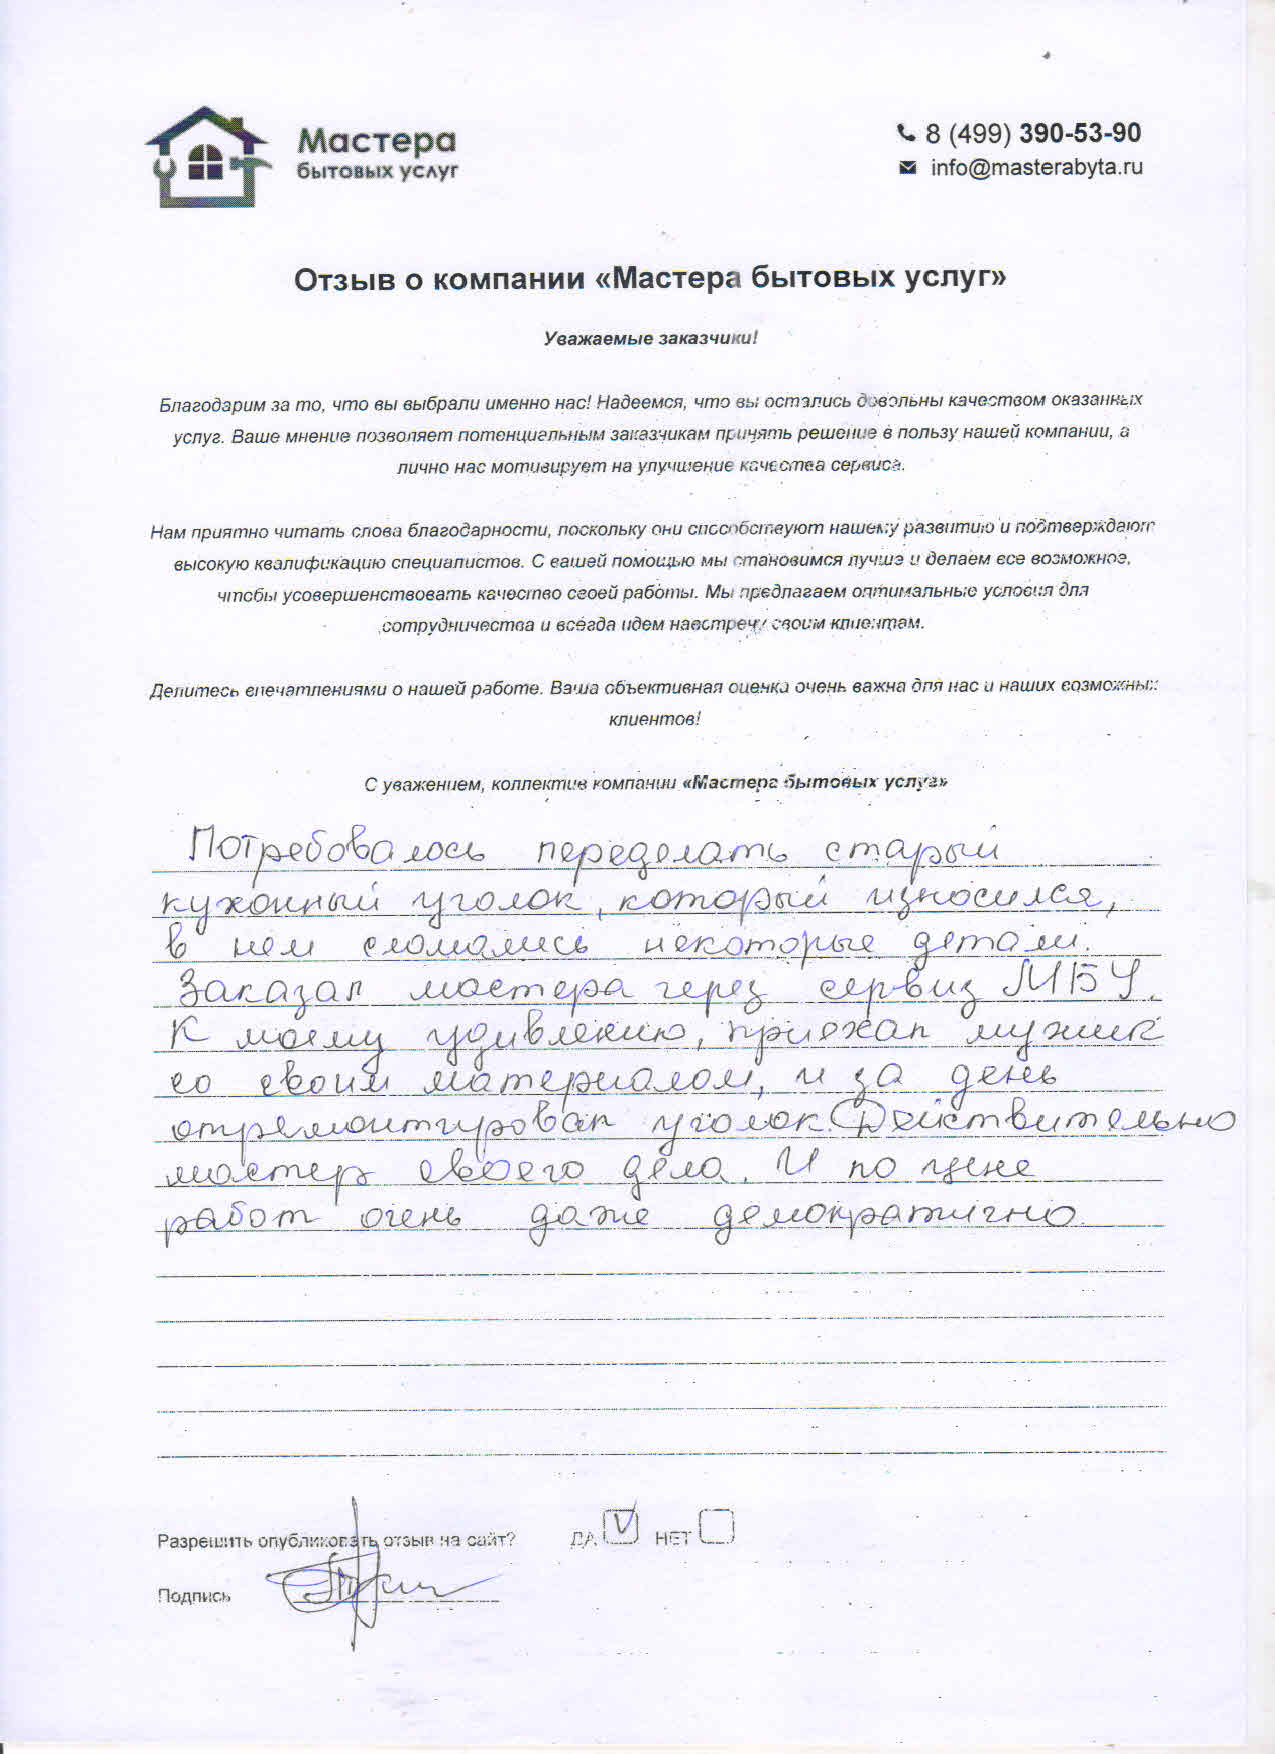 Мастера
бытовых услуг
8 (499) 390-53-90
info@masterabyta.ru
Отзыв о компании «Мастера бытовых услуг»
Уважаемые заказчики!
Благодарим за то, что вы выбрали именно нас! Надеемся, что вы остались довольны качеством оказанных
услуг. Ваше мнение позволяет потенциальным заказчикам принять решение в пользу нашей компании, а
лично нас мотивирует на улучшение качества сервиса.
Нам приятно читать слова благодарности, поскольку они способствуют нашему развитию и подтверждают
высокую квалификацию специалистов. С вашей помощью мы становимся лучше и делаем все возможное,
чтобы усовершенствовать качество своей работы. Мы предлагаем оптимальные условия для
сотрудничества и всегда идем навстречу своим клиентам.
Делитесь впечатлениями о нашей работе. Ваша объективная оценка очень важна для нас и наших возможных
клиентов!
С уважением, коллектив компании «Мастера бытовых услуг»
Потребовалось переделать старый
кухонный уголок, который износился,
в нем сломались некоторые детали.
Заказал мастера через сервиз МБУ.
К моему удивлению, приехал мужик
со своим материалом, и за день
отремонтировал уголок. Действительно
мастер своего дела. И по цене
работ очень даже демократично.
Разрешить опубликовать отзыв на сайт? ДА V НЕТ
Подпись